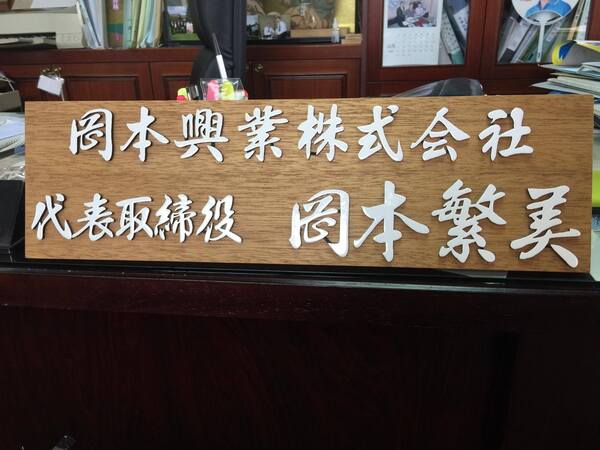 岡本興業株式会社
代表取締役 岡本繁美